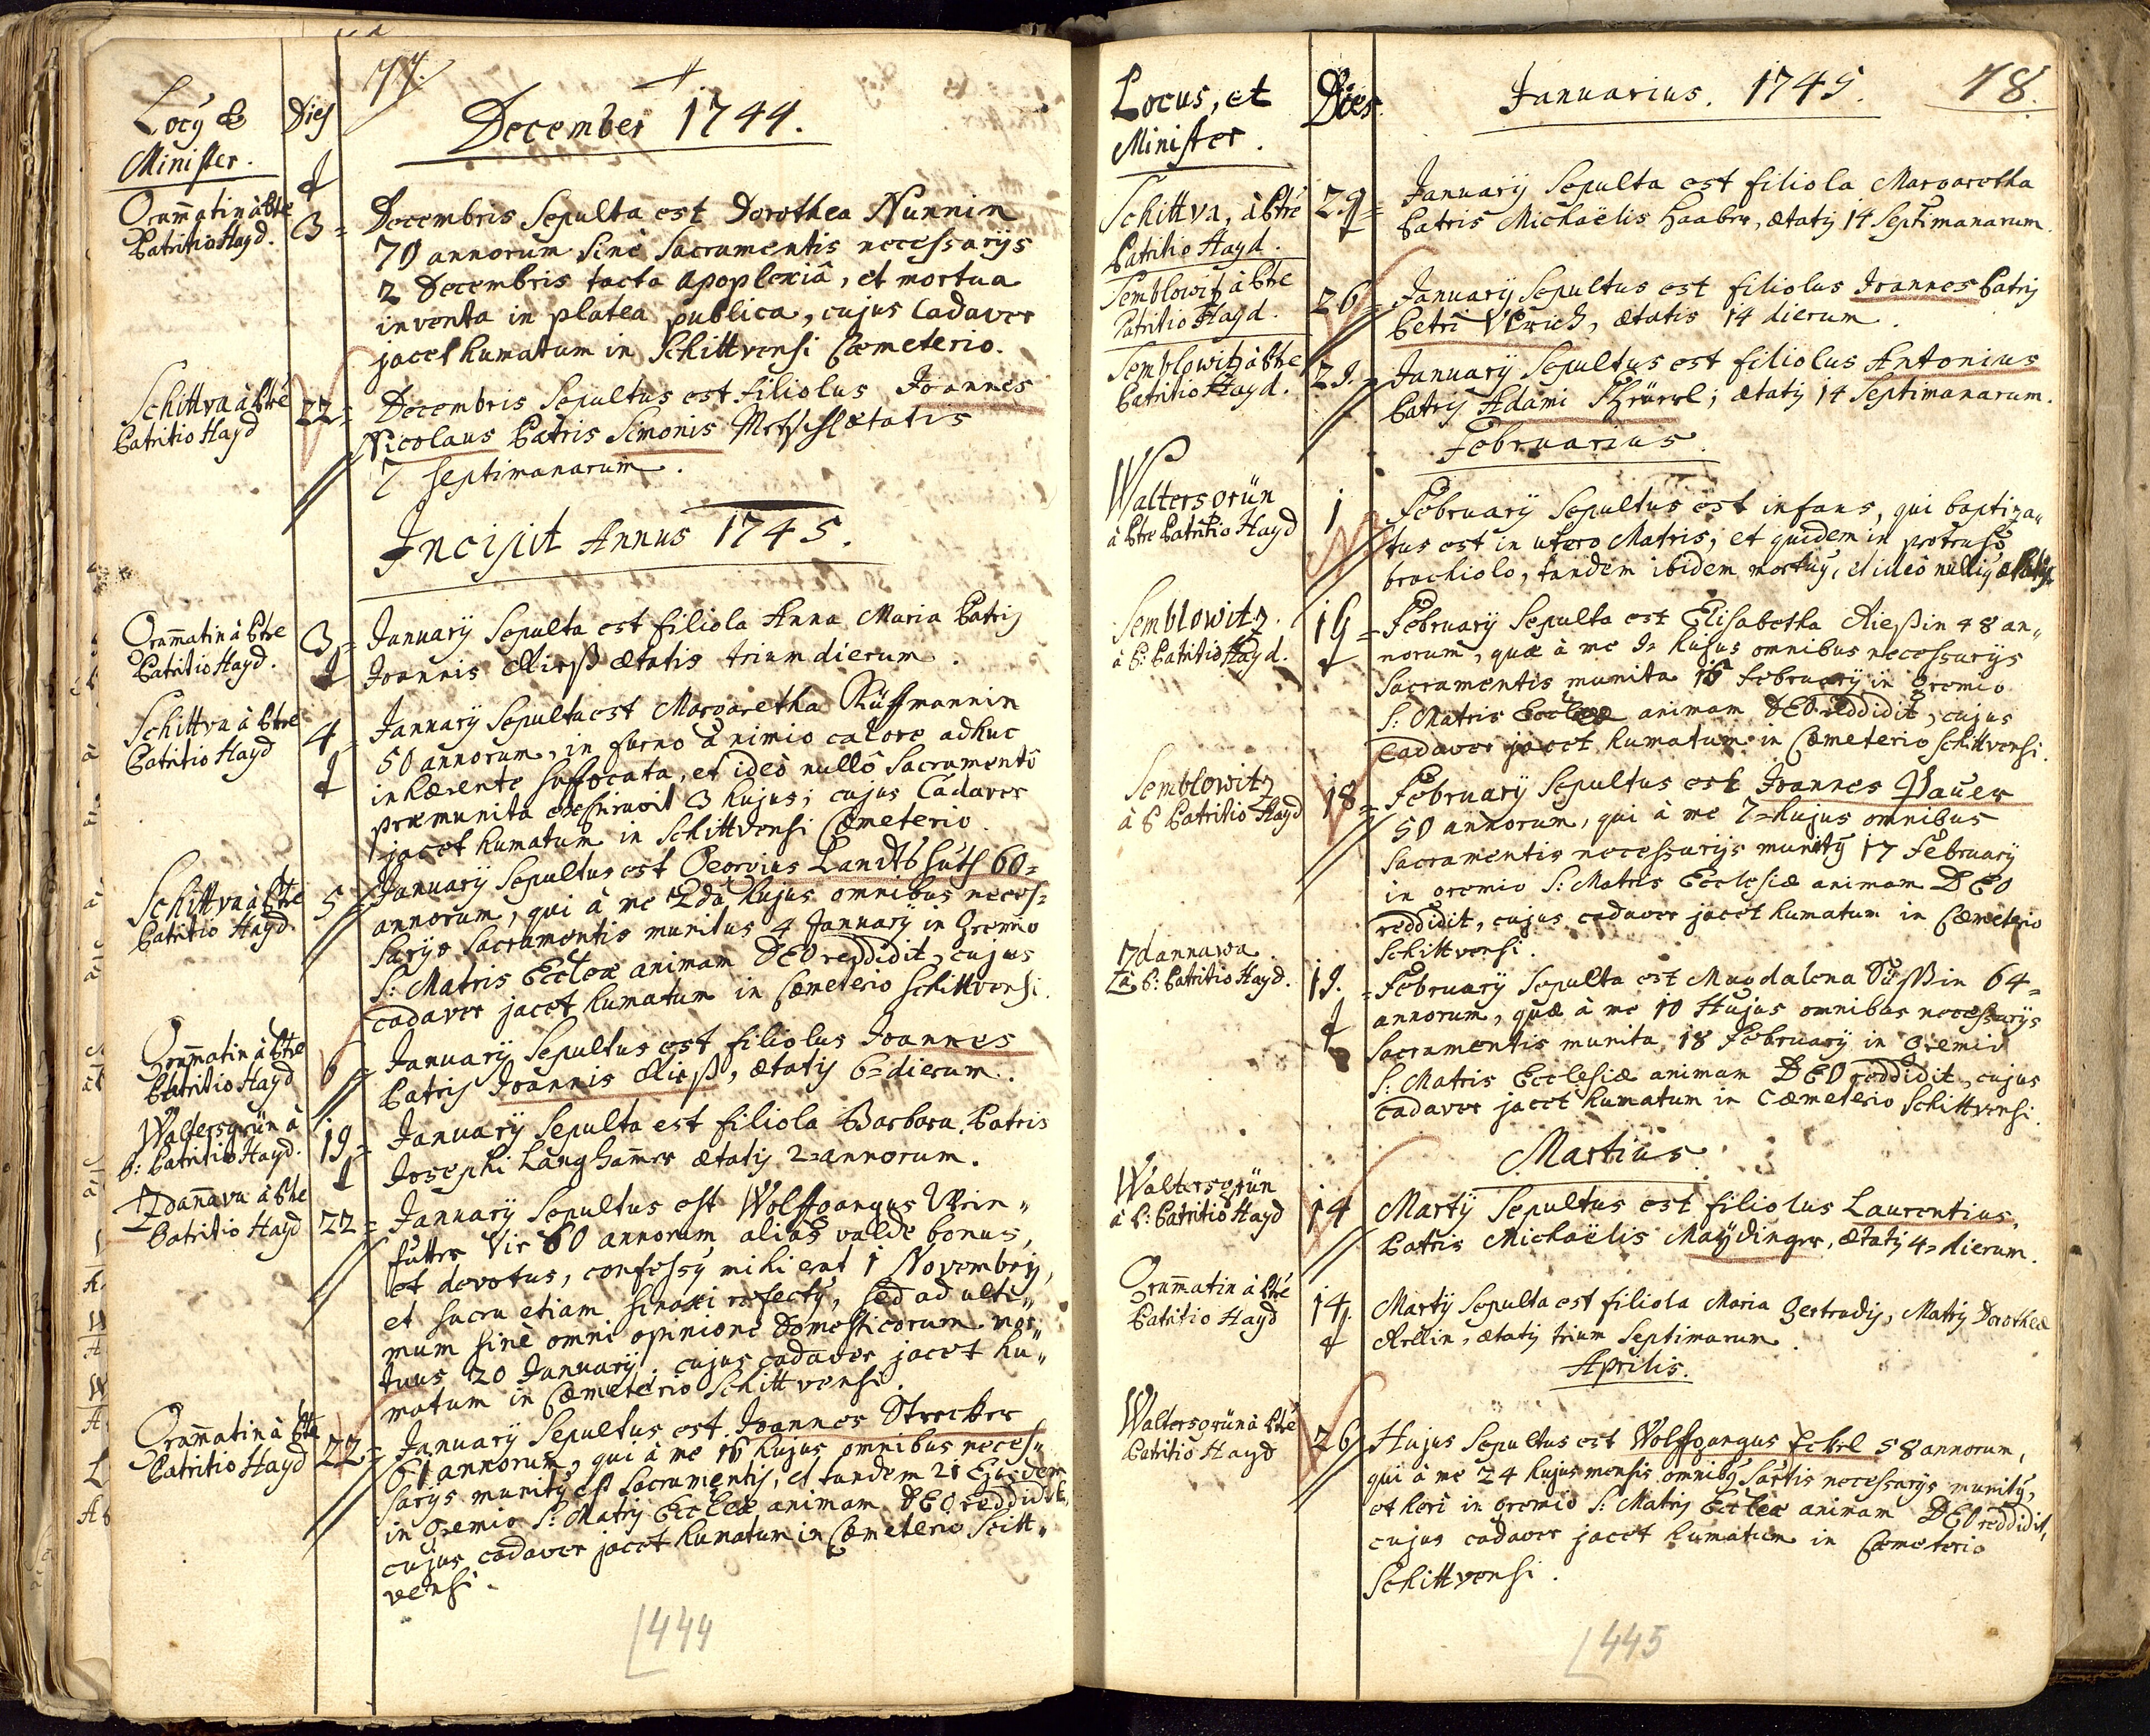 77.
Locȳ &
Minister.
Dies
December 1744.
Grām̄atin à Ptre
Patritio Hayd.
3=
Decembris Sepulta est Dorothea Nunnin
70 annorum sine Sacramentis necessarijs
2 Decembris tacta Apoplexiâ, et mortua
inventa in platea publica, cujus Cadaver
jacet humatum in Schittvensi Cœmeterio.
Schittva à Ptre
Patritio Hayd
22=
Decembris Sepultus est filiolus Joannes
Nicolaus Patris Simonis ætatis
7 septimanarum.
Incipit Annus 1745.
Patritio Hayd.
3=
January Sepulta est filiola Anna Maria Patris
Joannis Rieß ætatis trium dierum.
Schittva à Ptre
Patritio Hayd
4=
January Sepulta est Margaretha Rüffmannin
50 annorum, in furno à nimio calore adhuc
inhærente suffocata, et ideò nullô Sacramentô
præmunita exspiravit 3 hujus; cujus Cadaver
jacet humatum in Schittvensi Cœmeterio.
Schittva à Ptre
Patritio Hayd.
5
January Sepultus est Georgius Landtshuts 60=
annorum, qui à me 2da hujus omnibus neces=
sarijs Sacramentis munitus 4 January in Gremio
S: Matris Ecclæ animam DEO reddidit, cujus
cadaver jacet humatum in Cœmeterio Schittvensi.
Patritio Hayd
6=
January Sepultus est filiolus Joannes
Patris Joannis Rieß, ætatis 6=dierum.
Waltersgrün à
P: Patritio Hayd.
19=
January Sepulta est filiola Barbara Patris
Josephi Langham̄er ætatis 2=annorum.
Zdan̄ava à Ptre
Patritio Hayd
22=
January Sepultus est Wolffgangus
Vir 60 annorum aliàs valde bonus,
et devotus, confessus mihi erat 1 Novembris,
et sacra etiam sinaxi refectus, sed ad ulti„
mum sine omni opinione Domesticorum mor„
tuus 20 January. cujus cadaver jacet hu„
matum in Cœmeterio Schittvensi.
Patritio Hayd
22=
January Sepultus est Joannes Strecker
61 annorum, qui à me 16 hujus omnibus neces„
sarijs munitus est Sacramentis, et tandem 21 Ejusdem
in Gremio S: Matris Ecclæ animam DEO reddidit,
cujus cadaver jacet humatum in Cœmeterio Scitt„
vensi.
444
Locus, et
Minister.
Dies
Januarius. 1745.
78.
Schittva, à Ptre
Patritio Hayd.
January Sepulta est filiola Margaretha
Patris Michaëlis Haaber, ætatis 14 Septimanarum.
Semblowitz à Ptre
Patritio Hayd.
26=
January Sepultus est filiolus Joannes Patris
Petri Ulrich, ætatis 14 dierum.
Semblowitz à Ptre
Patritio Hayd.
29.
January Sepultus est filiolus Antonius
Patris Adami ætatis 14 Septimanarum.
Februarius.
Waltersgrün
à Ptre Patritio Hayd
1
February Sepultus est infans, qui baptiza„
tus est in utero Matris, et quidem in protruso
brachiolo, tandem ibidem mortuus, et ideò nullius ætatis.
Semblowitz.
à P: Patritio Hayd.
February Sepulta est Elisabetha Rießin 48 an„
norum, quæ à me 9= hujus omnibus necessarijs
Sacramentis munita 15 February in Gremio
S: Matris Ecclæ animam DEO reddidit, cujus
Cadaver jacet humatum in Cœmeterio Schittvensi.
Semblowitz
à P Patritio Hayd
18=
February Sepultus est Joannes Pauer
50 annorum, qui à me 7=hujus omnibus
Sacramentis necessarijs munitus 17 February
in gremio S: Matris Ecclesiæ animam DEO
reddidit, cujus cadaver jacet humatum in Cœmeterio
Schittvensi.
Zdannawa
à P: Patritio Hayd.
19.
February Sepulta est Magdalena Süssin 64=
annorum, quæ à me 10 Hujus omnibus necessarijs
Sacramentis munita 18 February in Gremio
S: Matris Ecclesiæ animam DEO reddidit, cujus
Cadaver jacet humatum in Cœmeterio Schittvensi.
Martius.
Waltersgrün
à P: Patritio Hayd
14
Martij Sepultus est filiolus Laurentius,
Patris Michaëlis Maydinger, ætatis 4=dierum.
Patritio Hayd
14.
Martij Sepulta est filiola Maria Gertrudis, Matris Dorotheæ
ætatis trium Septimarum.
Aprilis.
Waltersgrün à Ptre
Patritio Hayd
26
Hujus Sepultus est Wolffgangus Eckel 58 annorum,
qui à me 24 hujus mensis omnibus Sac̄tis necessarijs munitus,
et heri in Gremio S: Matris Ecclæ animam DEO reddidit,
cujus cadaver jacet humatum in Cœmeterio
Schittvensi.
445